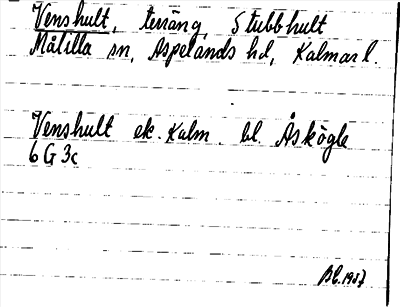 Venshult, terräng, Stubbhult
Målilla sn, Aspelands hd, Kalmar l.
Venshult ek. Kalm. bl. Åskögle
6 G 3c
Bl. 1957